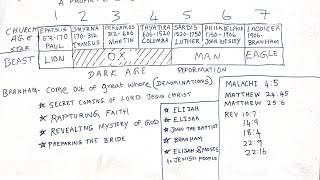 A PROPHETIC
1 2 3 4 5 6 7
CHURCH AGE EPHESUS SMYRNA PERGAMUS THYATIRA SARDIS PHILADELPHIA LAODICEA
53-170 170-312 312-606 606-1520 1520-1750 1750-1906 1906-
STAR PAUL IRENAEUS MARTIN COLUMBA LUTHER JOHN WESLEY BRANHAM
BEAST LION OX MAN EAGLE
DARK AGE REFORMATION
BRANHAM - COME OUT OF great whore (DENOMINATIONS)
★ SECRET COMING OF LORD JESUS CHRIST
★ RAPTURING FAITH
★ REVEALING MYSTERY OF GOD
★ PREPARING THE BRIDE
★ ELIJAH
★ ELISHA
★ JOHN THE BAPTIST
★ BRANHAM
★ ELIJAH & MOSES
to JEWISH PEOPLE
MALACHI 4:5
MATTHEW 24:45
MATTHEW 25:6
REV 10:7
14:9
18:4
22:9
22:16